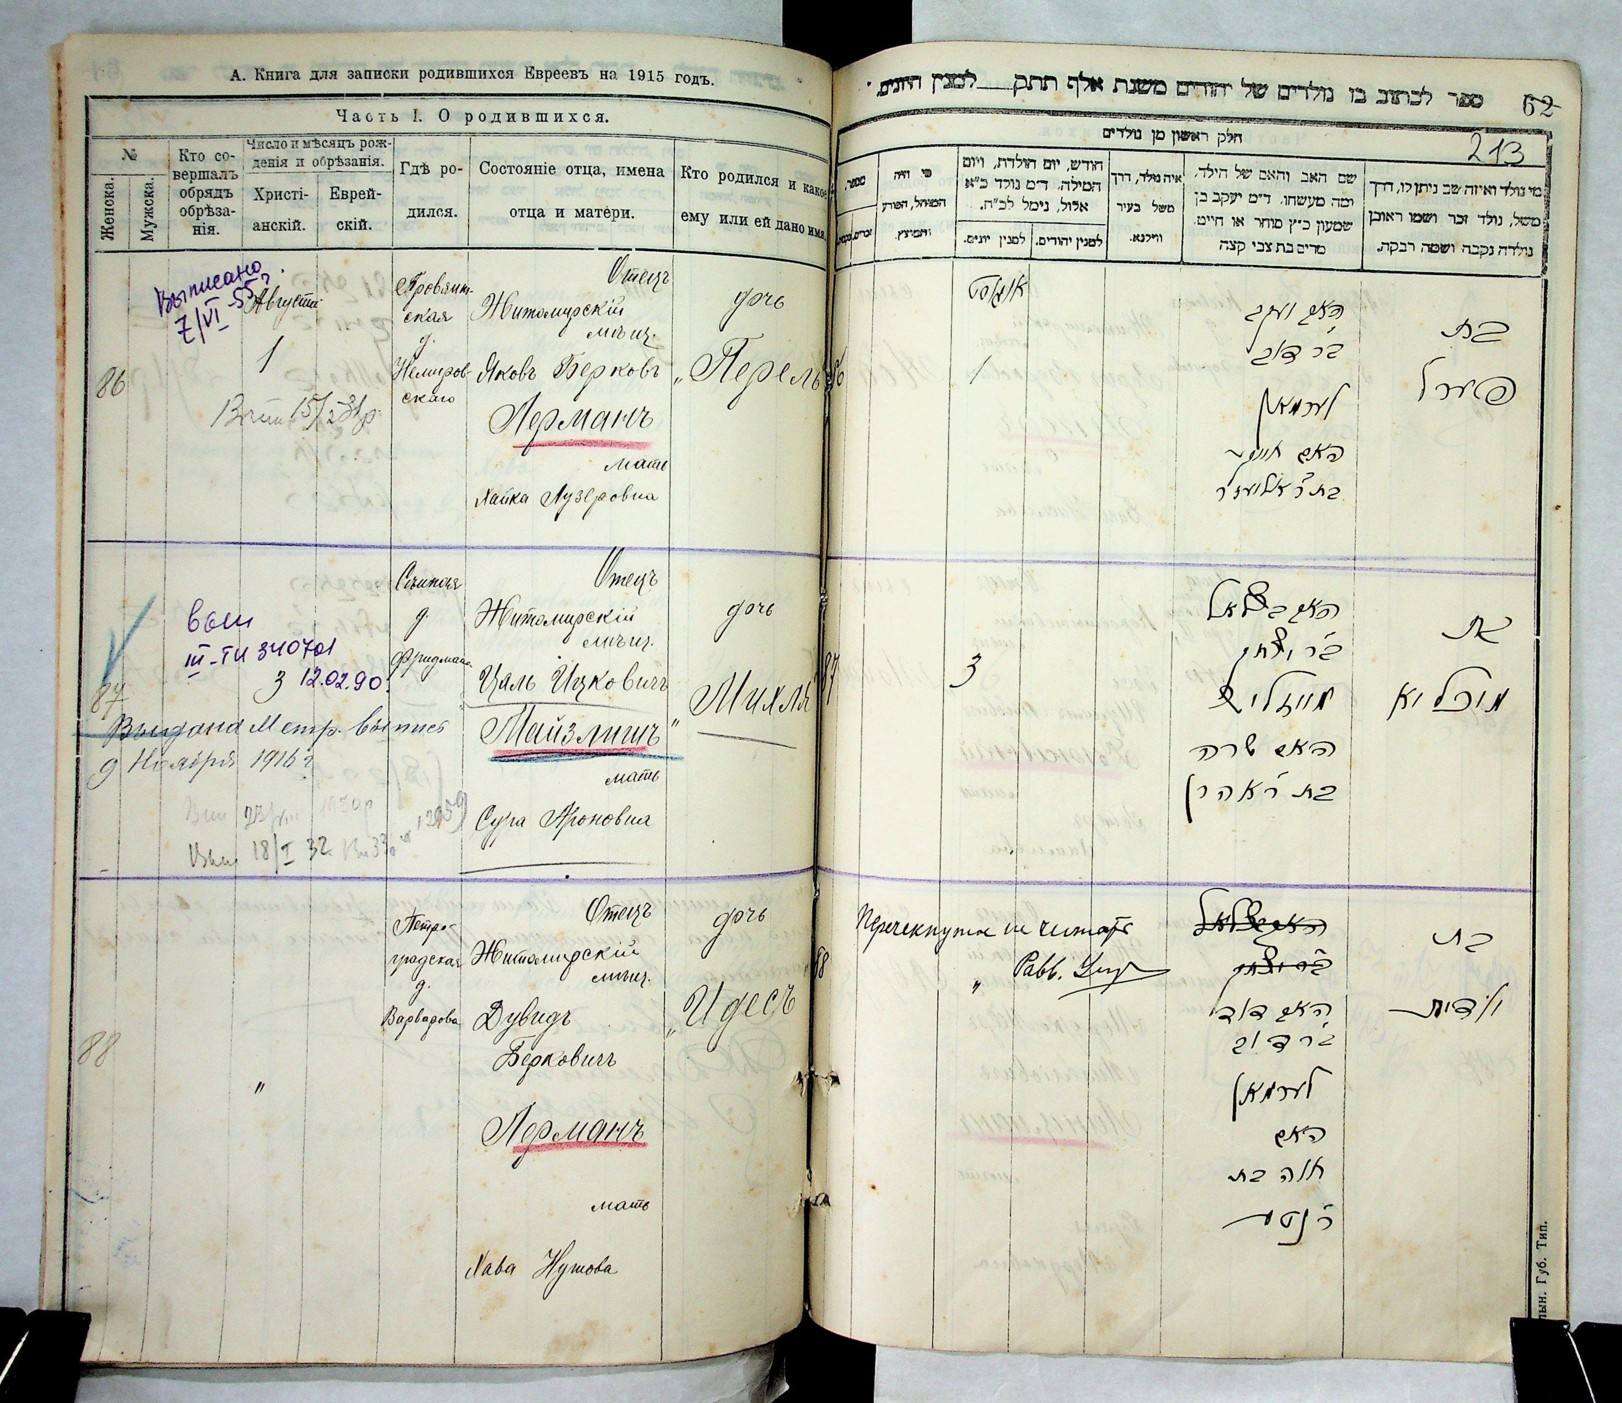 А. Книга для записки родившихся Евреевъ на 1915 годъ.
Часть I. О родившихся.
№
Женска.
Мужска.
Кто совершалъ обрядъ обрѣзанія.
Число и мѣсяцъ рожденія и обрѣзанія.
Христіанскій.
Еврейскій.
Гдѣ родился.
Состояніе отца, имена отца и матери.
Кто родился и какое ему или ей дано имя.
Выписано
7/VI-55 г.
86
Августа
1
15/
Провіянтская
д.
Немировскаго
Отецъ
Житомирскій
мѣщ.
Яковъ Берковъ
Лерманъ
мать
Хайка Лузеровна
дочь
„Перель
вып
III-ТИ 340701
12.02.90.
87
3
Выдана Метр. выпись
9 Ноября 1916 г
Вып 18/I 32
Сѣнная
д.
Фридмана
Отецъ
Житомирскій
мѣщ.
Цаль Ицковичъ
Майзлишъ
мать
Сура Ароновна
дочь
Михля
88
"
Петроградская
д.
Варварова
Отецъ
Житомирскій
мѣщ.
Дувидъ
Берковичъ
Лерманъ
мать
Хава Нутова
дочь
„Идесъ
ספר לכתוב בו נולדים של יהודים משנת אלף תתק למנין היונים
62
213
חלק ראשון מן נולדים
מספר
מי היה המוהל, הפורע והמוצץ.
חודש, יום הולדת, ויום המילה. ד״מ נולד כ״א אלול, נימל לכ״ח.
למנין יונים.
למנין יהודים.
איה נולד, דרך משל בעיר ווילנא.
שם האב והאם של הילד, ומה מעשהו. ד״מ יעקב בן שמעון כ״ץ סוחר או חיים. מרים בת צבי קצה
מי נולד ואיזה שם ניתן לו, דרך משל, נולד זכר ושמו ראובן נולדה נקבה ושמה רבקה.
86
אוגוסט
1
האב יעקב
בר דוב
לערמאן
האם חייקע
בת ר׳ אליעזר
בת
פערל
87
3
האב בצלאל
בר יצחק
מייזליש
האם שרה
בת ר׳ אהרן
בת
מיכליא
88
Перечекнутое не читать
Равв.
"
האב בצלאל
בר יצחק
האב דוד
בר דוב
לערמאן
האם
חוה בת
ר׳ נטע
בת
יודית
лын. Губ. Тип.